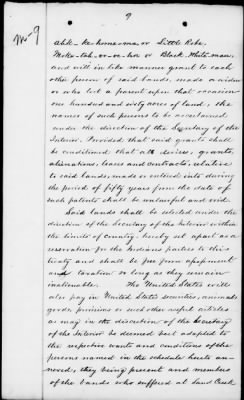 9
M-9
Ahk-ke-home-ma or Little Robe,
Moke-tah-vo-ve-ho or Black White-man,
and will in like manner grant to each
other person of said bands, made a widow
or who lost a parent upon that occasion
one hundred and sixty acres of land, the
names of such persons to be ascertained
under the direction of the Secretary of the
Interior. Provided that said grants shall
be conditioned that all devises, grants,
alienations, leases and contracts, relative
to said lands, made or entered into during
the period of fifty years from the date of
such patents shall be unlawful and void.
Said lands shall be selected under the
direction of the Secretary of the Interior within
the limits of country hereby set apart as a
reservation for the Indians parties to this
treaty and shall be free from assessment
and taxation so long as they remain
inalienable. The United States will
also pay in United States securities, animals
goods provisions or such other useful articles
as may in the discretion of the Secretary
of the Interior be deemed best adapted to
the respective wants and conditions of the
persons named in the schedule hereto an-
nexed, they being present and members
of the bands who suffered at Sand Creek